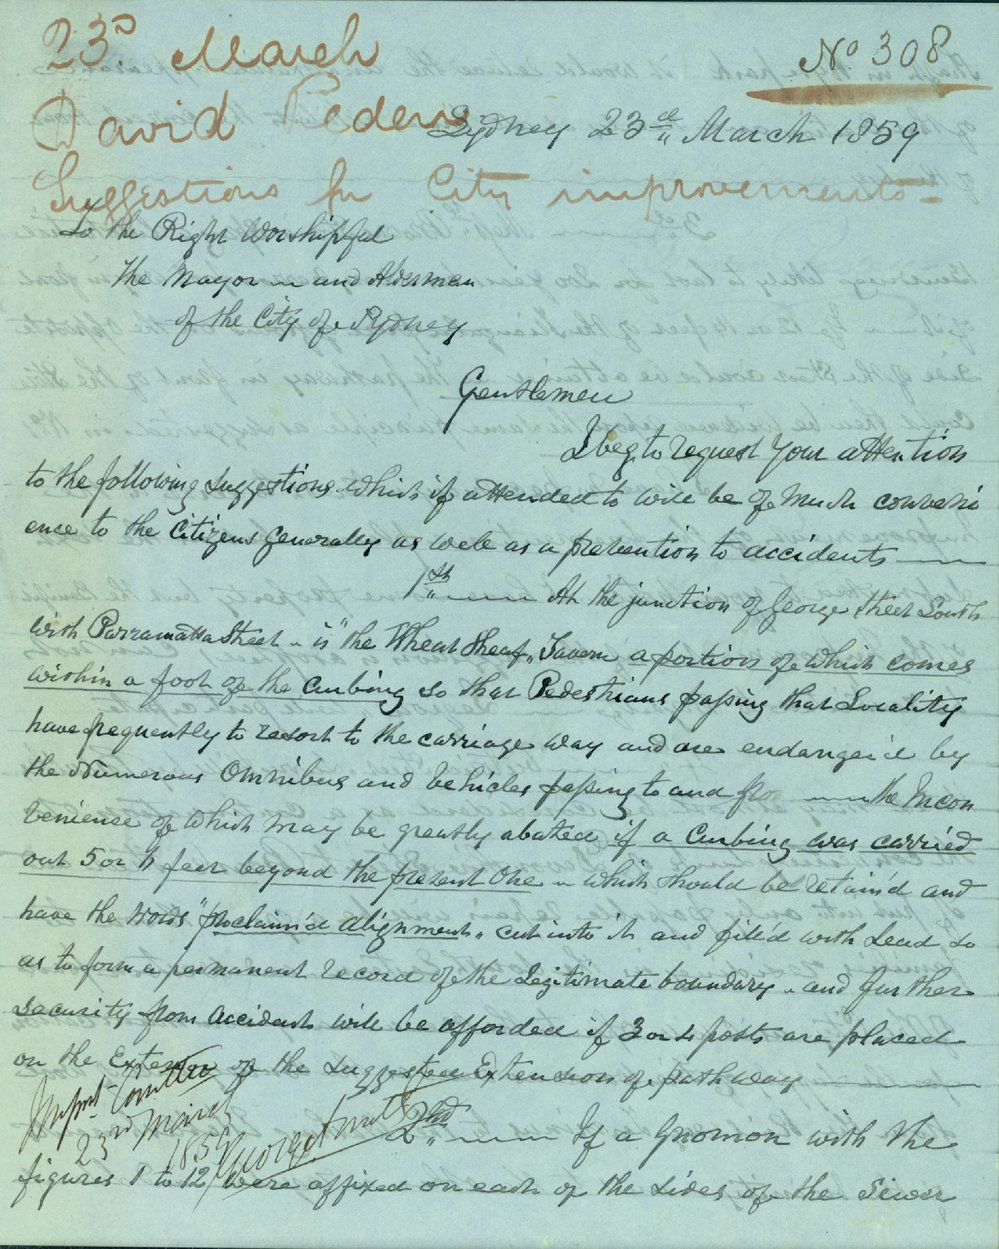 23d March
No 308
David Peden
Sydney 23rd March 1859
Suggestions for City improvements
To the Right Worshipful
The Mayor and Alderman
of the City of Sydney
Gentlemen
I beg to request your attention
to the following suggestions which if attended to will be of much conveni
ence to the Citizens generally as well as a prevention to accidents
1st At the junction of George Street South
with Parramatta Street is "the Wheat Sheaf" Tavern a portion of which comes
within a foot of the curbing so that Pedestrians passing that Locality
have frequently to resort to the carriage way and are endanger'd by
the Numerous Omnibus and Vehicles passing to and fro the Incon
venience of which may be greatly abated if a Curbing was carried
out 5 or 6 feet beyond the present One which should be retain'd and
have the words "proclaim'd alignment" cut into it and fill'd with Lead so
as to form a permanent record of the Legitimate boundary and further
security from accidents will be afforded if 3 or 4 posts are placed
on the Extreme of the suggested Extension of pathway
Improvt Comittee
23rd March
1859
George
2nd If a Gnomon with the
figures 1 to 12 were affixed on each of the sides of the Sewer